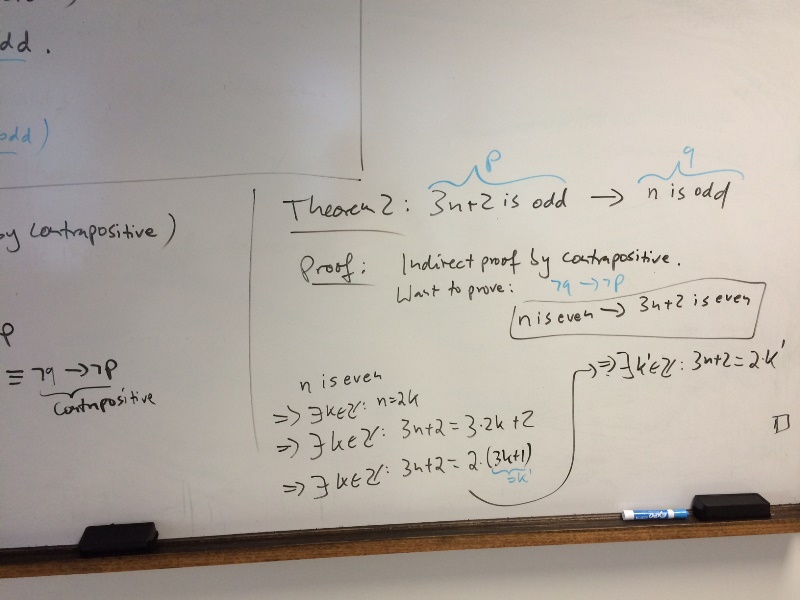 odd.
odd)
by contrapositive)
p
≡ ¬q → ¬p
contrapositive
p
q
Theorem 2: 3n+2 is odd → n is odd
Proof: Indirect proof by contrapositive.
Want to prove: ¬q → ¬p
n is even → 3n+2 is even
n is even
⇒ ∃k∈ℤ: n=2k
⇒ ∃k∈ℤ: 3n+2 = 3·2k+2
⇒ ∃k∈ℤ: 3n+2 = 2·(3k+1)
=k'
⇒ ∃k'∈ℤ: 3n+2 = 2·k'
□
EXPO